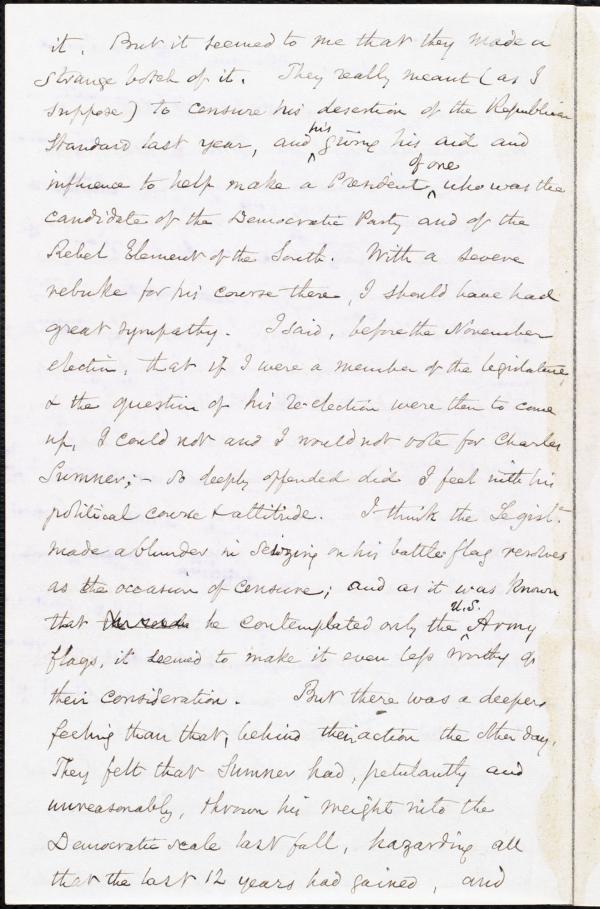 it. But it seemed to me that they made a
strange botch of it. They really meant (as I
suppose) to censure his desertion of the Republican
Standard last year, and his giving his aid and
influence to help make a President, of one who was the
candidate of the Democratic Party and of the
Rebel Element of the South. With a severe
rebuke for his course there, I should have had
great sympathy. I said, before the November
election, that if I were a member of the legislature,
& the question of his re-election were then to come
up, I could not and I would not vote for Charles
Sumner; - so deeply offended did I feel with his
political course & attitude. I think the Legislre.
made a blunder in seizing on his battle-flag resolves
as the occasion of censure; and as it was known
that he contemplated only the U.S. Army
flags, it seemed to make it even less worthy of
their consideration. But there was a deeper
feeling than that, behind their action the other day.
They felt that Sumner had, petulantly and
unreasonably, thrown his weight into the
Democratic scale last fall, hazarding all
that the last 12 years had gained, and